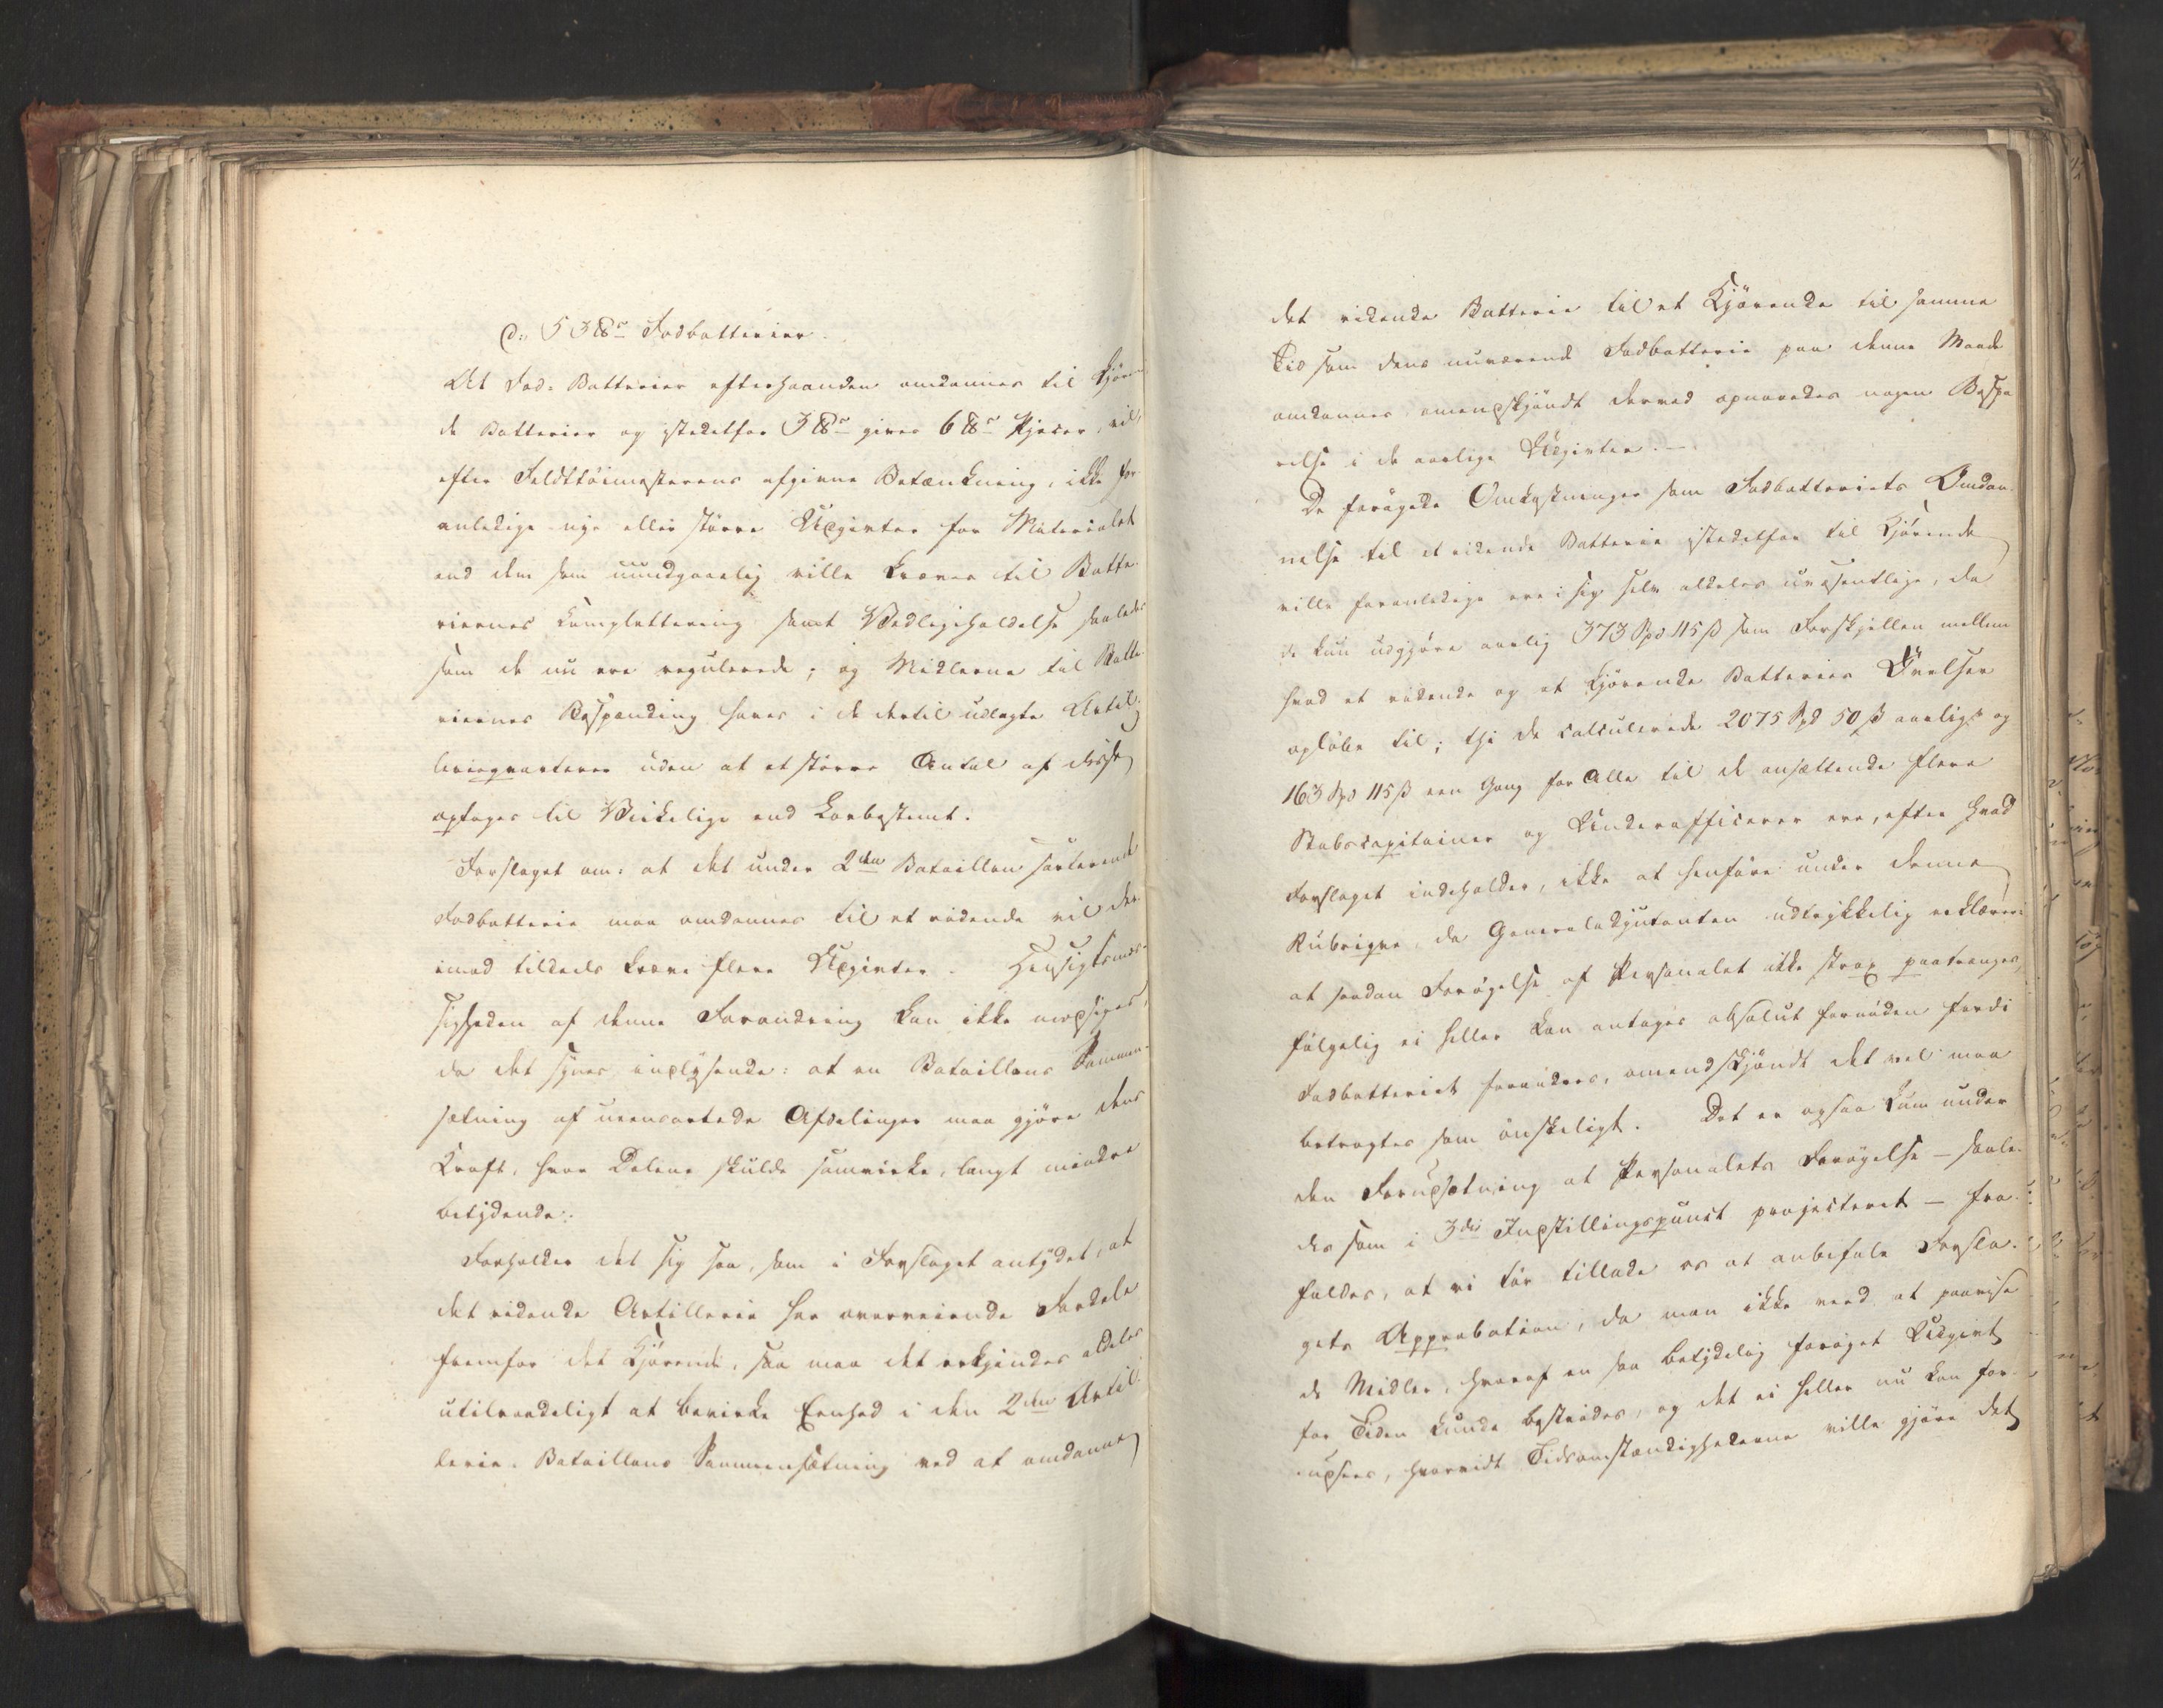 d: 5 3 ℔r Fodbatterier.
At Fod-Batterier efterhaanden omdannes til Kjøren-
de Batterier og istedetfor 3 ℔r gives 6 ℔r Pjecer, vil,
efter Feldttöimesterens afgivne Betænkning, ikke for-
anledige nye eller større Udgivter for Materialet
end dem som uundgaaelig ville kræves til Batte-
riernes Complettering samt Vedligeholdelse saaledes
som de nu ere regulerede; og Midlerne til Batte-
riernes Bespænding haves i de dertil udlagte Artil-
leriequarterer uden at et større Antal af disse
optages til Virkelige end Lovbestemt.
Forslaget om: at det under 2den Bataillon sorterende
Fodbatterie maa omdannes til et ridende vil der-
imod tildeels kræve flere Udgivter. Hensigtsmæs-
sigheden af denne Forandring kan ikke modsiges,
da det synes indlysende: at en Bataillons Sammen-
sætning af ueensartede Afdelinger maa gjøre dens
Kraft, hvor Delene skulde samvirke, langt mindre
betydende.
Forholder det sig saa, som i Forslaget antydet, at
det ridende Artillerie har overveiende Fordele
fremfor det Kjørende, saa maa det erkjendes aldeles
utilraadeligt at bevirke Eenhed i den 2den Artil-
lerie-Bataillons Sammensætning ved at omdanne
det ridende Batterie til et Kjørende til samme
Tid som dens nuværende Fodbatterie paa denne Maade
omdannes omendskjöndt derved opnaaedes nogen Bespa-
relse i de aarlige Udgivter. —
De forøgede Omkostninger som Fodbatteriets Omdan-
nelse til et ridende Batterie istedetfor til Kjörende
ville foranledige ere i sig selv aldeles uvæsentlige, da
de kun udgjøre aarlig 373 Spd 115 ß som Forskjellen mellem
hvad et ridende og et kjörende Batteries Øvelser
opløbe til; thi de calculerede 2075 Spd 50 ß aarligt og
163 Spd 115 ß een Gang for Alle til de ansættende flere
Stabscapitainer og Underofficerer ere, efter hvad
Forslaget indeholder, ikke at henføre under denne
Rubrique, da Generaladjutanten udtrykkelig erklærer:
at saadan Forøgelse af Personalet ikke strax paatrænges,
følgelig ei heller kan antages absolut fornøden fordi
Fodbatteriet forandres, omendskjöndt det vel maa
betragtes som ønskeligt. Det er ogsaa kun under
den Forudsætning at Personalets Forøgelse — saale-
des som i 3die Indstillingspunct projecteret — fra-
faldes, at vi tør tillade os at anbefale Forsla-
gets Approbation, da man ikke veed at paavise
de Midler, hvoraf en saa betydelig forøget Udgivt
for Tiden kunde bestrides, og det ei heller nu kan for-
udsees, hvorvidt Tidsomstændighederne ville gjøre det